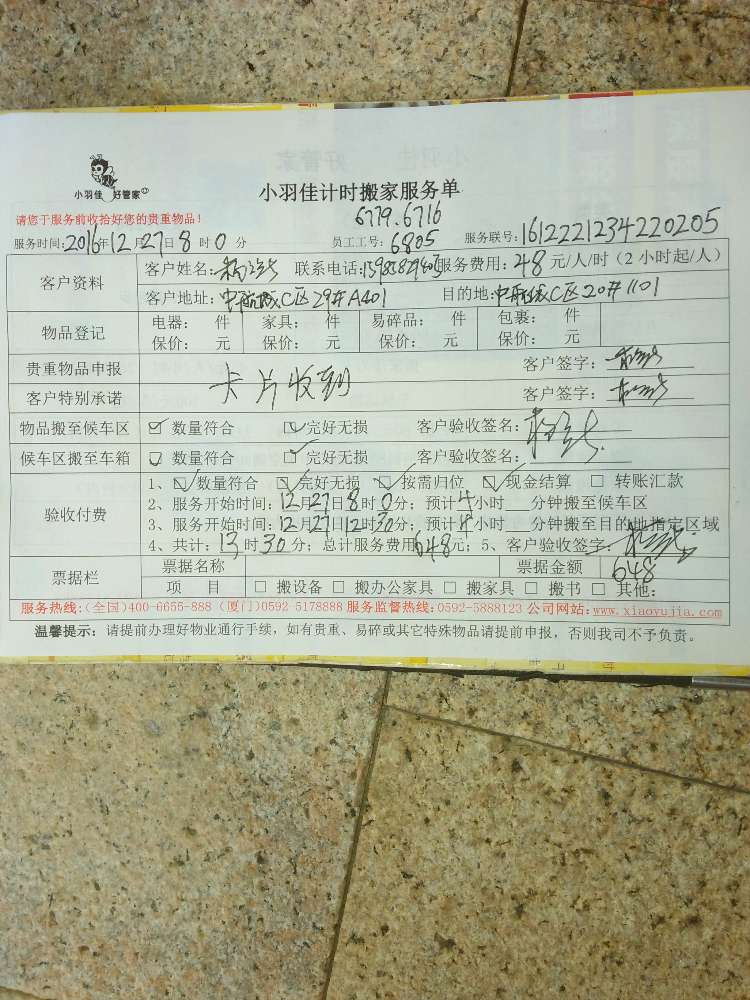 小羽佳 好管家
小羽佳计时搬家服务单
请您于服务前收拾好您的贵重物品！
6779.6716
服务时间:2016年12月27日8时0分 员工工号:6805 服务联号:1612221234220205
客户资料 客户姓名: 联系电话: 服务费用:48元/人/时（2小时起/人）
客户地址:中航城C区29#A401 目的地:中航城C区20#1101
物品登记 电器: 件 家具: 件 易碎品: 件 包裹: 件
保价: 元 保价: 元 保价: 元 保价: 元
贵重物品申报 客户签字:
卡片收到
客户特别承诺 客户签字:
物品搬至候车区 数量符合 完好无损 客户验收签名:
候车区搬至车箱 数量符合 完好无损 客户验收签名:
验收付费 1、数量符合 完好无损 按需归位 现金结算 转账汇款
2、服务开始时间:12月27日8时0分；预计4小时__分钟搬至候车区
3、服务开始时间:12月27日12时30分；预计4小时__分钟搬至目的地指定区域
4、共计:13时30分；总计服务费用648元；5、客户验收签字:
票据栏 票据名称 票据金额 648
项 目 搬设备 搬办公家具 搬家具 搬书 其他:
服务热线:(全国)400-6655-888 (厦门)0592 5178888 服务监督热线:0592-5888123 公司网站:www.xiaoyujia.com
温馨提示：请提前办理好物业通行手续，如有贵重、易碎或其它特殊物品请提前申报，否则我司不予负责。